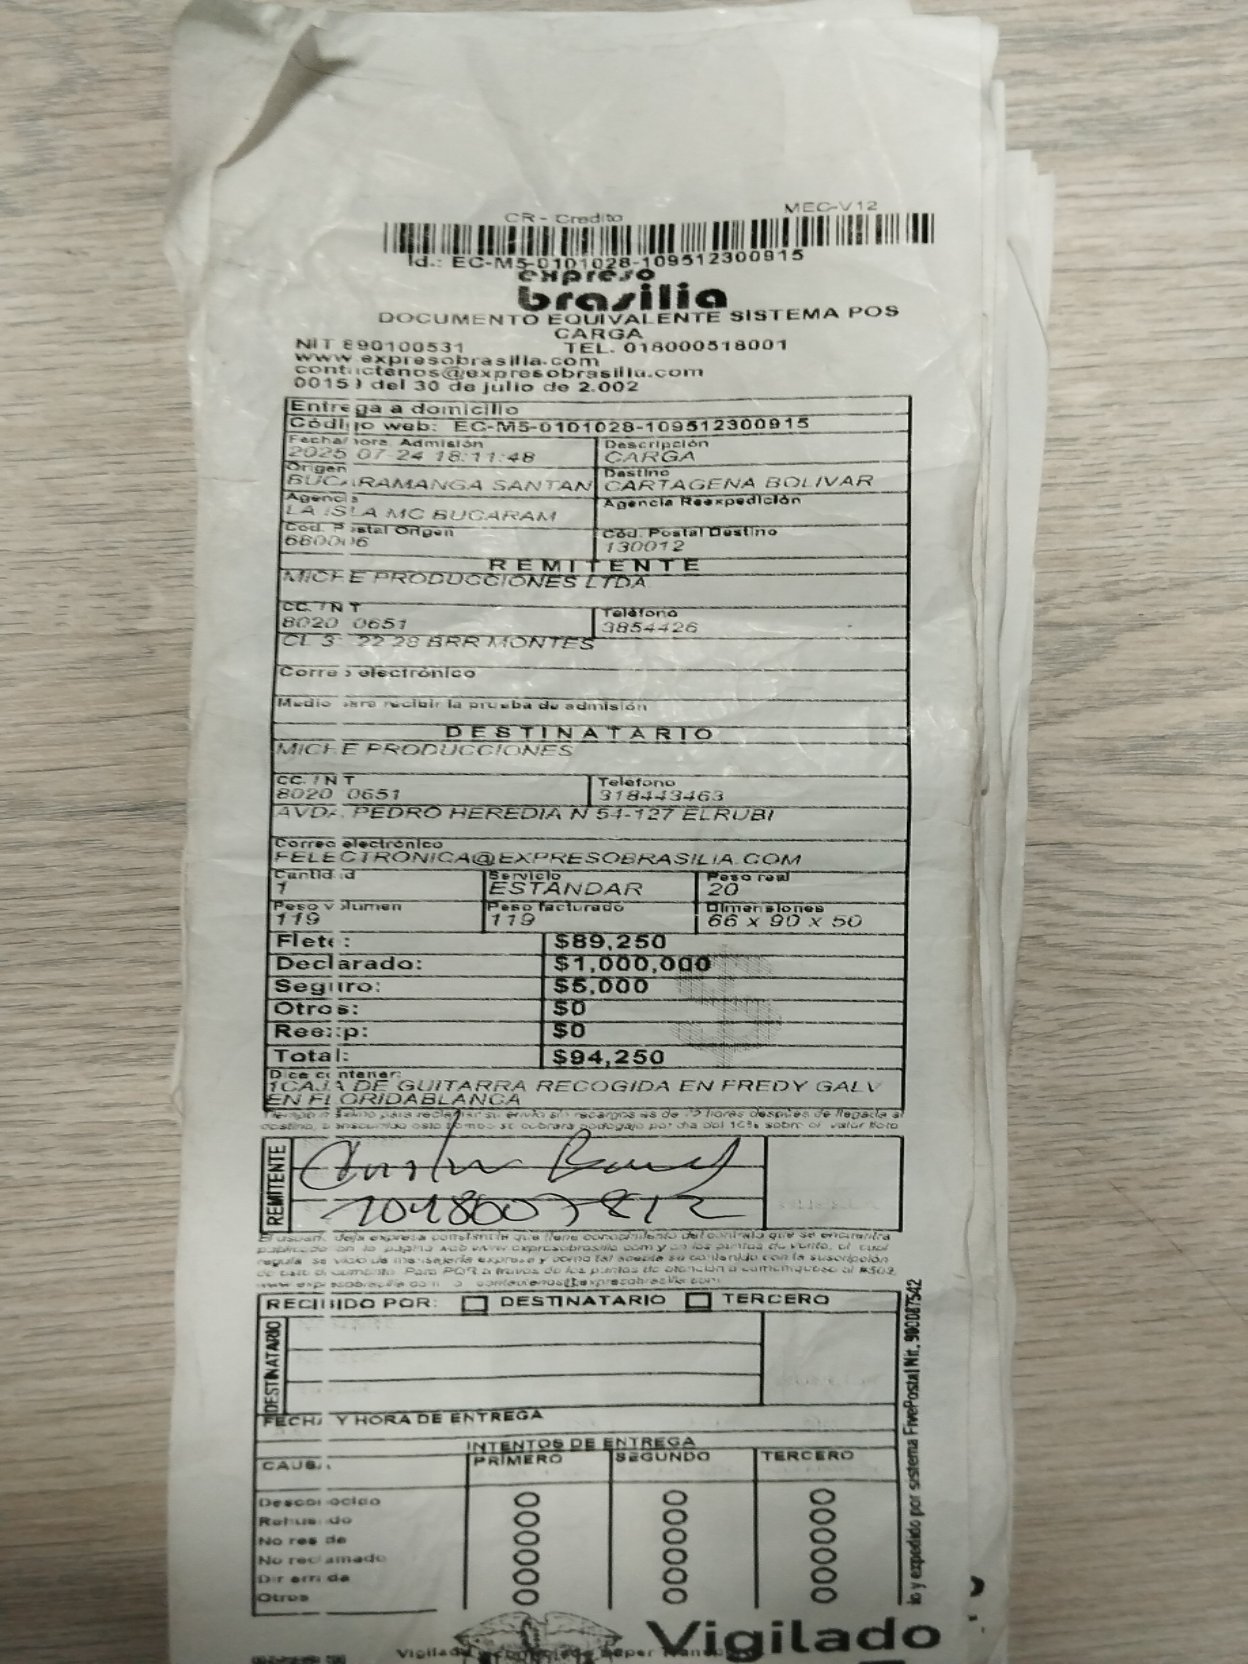 CR - Credito
MEC-V12
Id.: EC-M5-0101028-109512300915
expreso
brasilia
DOCUMENTO EQUIVALENTE SISTEMA POS
CARGA
NIT 890100531 TEL. 018000518001
www.expresobrasilia.com
contactenos@expresobrasilia.com
del 30 de julio de 2.002
Entrega a domicilio
Código web: EC-M5-0101028-109512300915
Fecha/hora Admisión Descripción
2025 07-24 18:11:48 CARGA
Origen Destino
BUCARAMANGA SANTAN CARTAGENA BOLIVAR
Agencia Agencia Reexpedición
LA ISLA MC BUCARAM
Cod. Postal Origen Cód. Postal Destino
680006 130012
REMITENTE
MICHE PRODUCCIONES LTDA
CC. / NIT Teléfono
8020 0651 3854426
CL 3 22 28 BRR MONTES
Correo electrónico
Medio para recibir la prueba de admisión
DESTINATARIO
MICHE PRODUCCIONES
CC. / NIT Teléfono
8020 0651 318443463
AVDA. PEDRO HEREDIA N 54-127 ELRUBI
Correo electrónico
FELECTRONICA@EXPRESOBRASILIA.COM
Cantidad Servicio Peso real
1 ESTANDAR 20
Peso volumen Peso facturado Dimensiones
119 119 66 x 90 x 50
Flete: $89,250
Declarado: $1,000,000
Seguro: $5,000
Otros: $0
Reexp: $0
Total: $94,250
Dice contener:
1CAJA DE GUITARRA RECOGIDA EN FREDY GALV
EN FLORIDABLANCA
para reclamar su envío sin recargos es de 72 horas después de llegada al
destino, transcurrido este tiempo se cobrará bodegaje por día del 10% sobre el valor flete
REMITENTE
1048607812
El usuario deja expresa constancia que tiene conocimiento del contrato que se encuentra
publicado en la página web www.expresobrasilia.com y en los puntos de venta, el cual
regula servicio de mensajería expresa y como tal acepta su contenido con la suscripción
de este documento. Para PQR a través de los puntos de atención o comuníquese al #502
www.expresobrasilia.com o contactenos@expresobrasilia.com
RECIBIDO POR: DESTINATARIO TERCERO
DESTINATARIO
FECHA Y HORA DE ENTREGA
INTENTOS DE ENTREGA
CAUSA PRIMERO SEGUNDO TERCERO
Desconocido
Rehusado
No reside
No reclamado
Dir errada
Otros
y expedido por sistema FivePostal Nit. 900087542
Vigilado